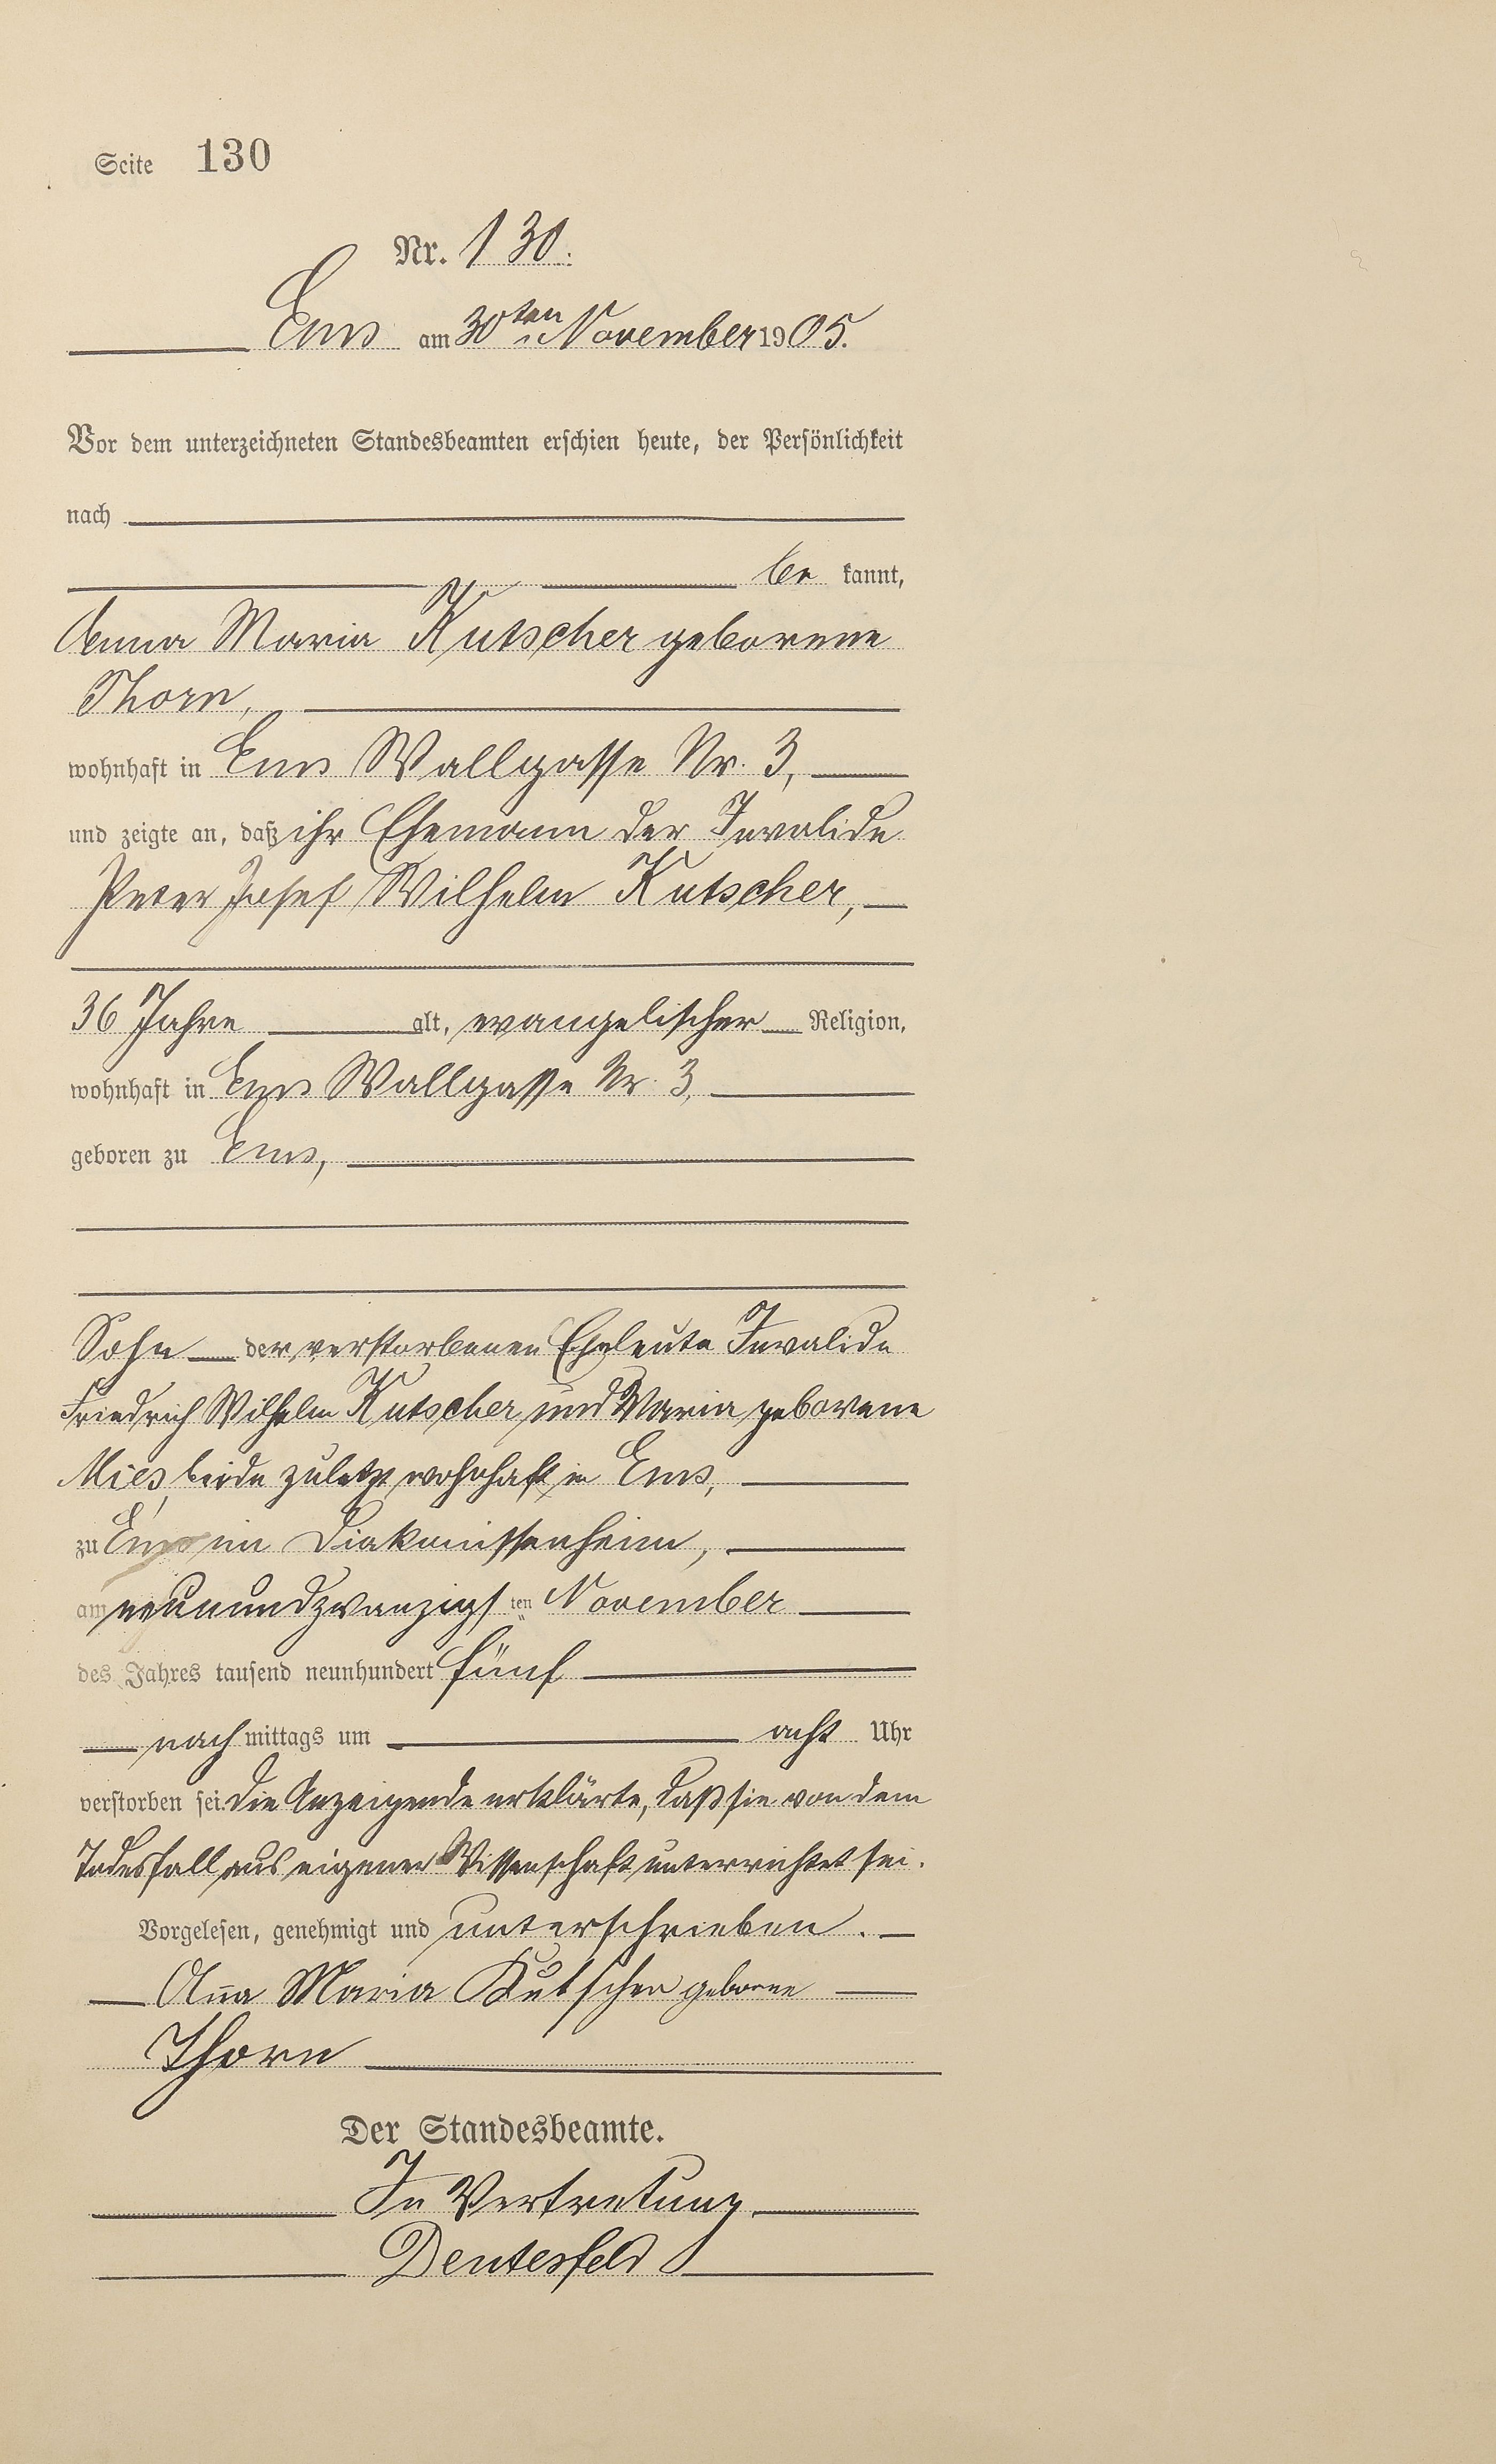 Seite 130
Nr. 130.
Ems am 30ten November 1905.
Vor dem unterzeichneten Standesbeamten erschien heute, der Persönlichkeit
nach
be kannt,
Anna Maria Kutscher geborene
Thorn,
wohnhaft in Ems Wallgasse Nr. 3,
und zeigte an, daß ihr Ehemann der Invalide
Peter Josef Wilhelm Kutscher,
36 Jahre alt, evangelischer Religion,
wohnhaft in Ems Wallgasse Nr. 3,
geboren zu Ems,
Sohn der verstorbenen Eheleute Invalide
Friedrich Wilhelm Kutscher und Maria geborene
Mies, beide zuletzt wohnhaft in Ems,
zu Ems im Diakonissenheim,
am neunundzwanzigsten November
des Jahres tausend neunhundert fünf
nach mittags um acht Uhr
verstorben sei. Die Anzeigende erklärte, daß sie von dem
Todesfall aus eigener Wissenschaft unterrichtet sei.
Vorgelesen, genehmigt und unterschrieben.
Anna Maria Kutscher geborne
Thorn
Der Standesbeamte.
In Vertretung
Dentesfeld